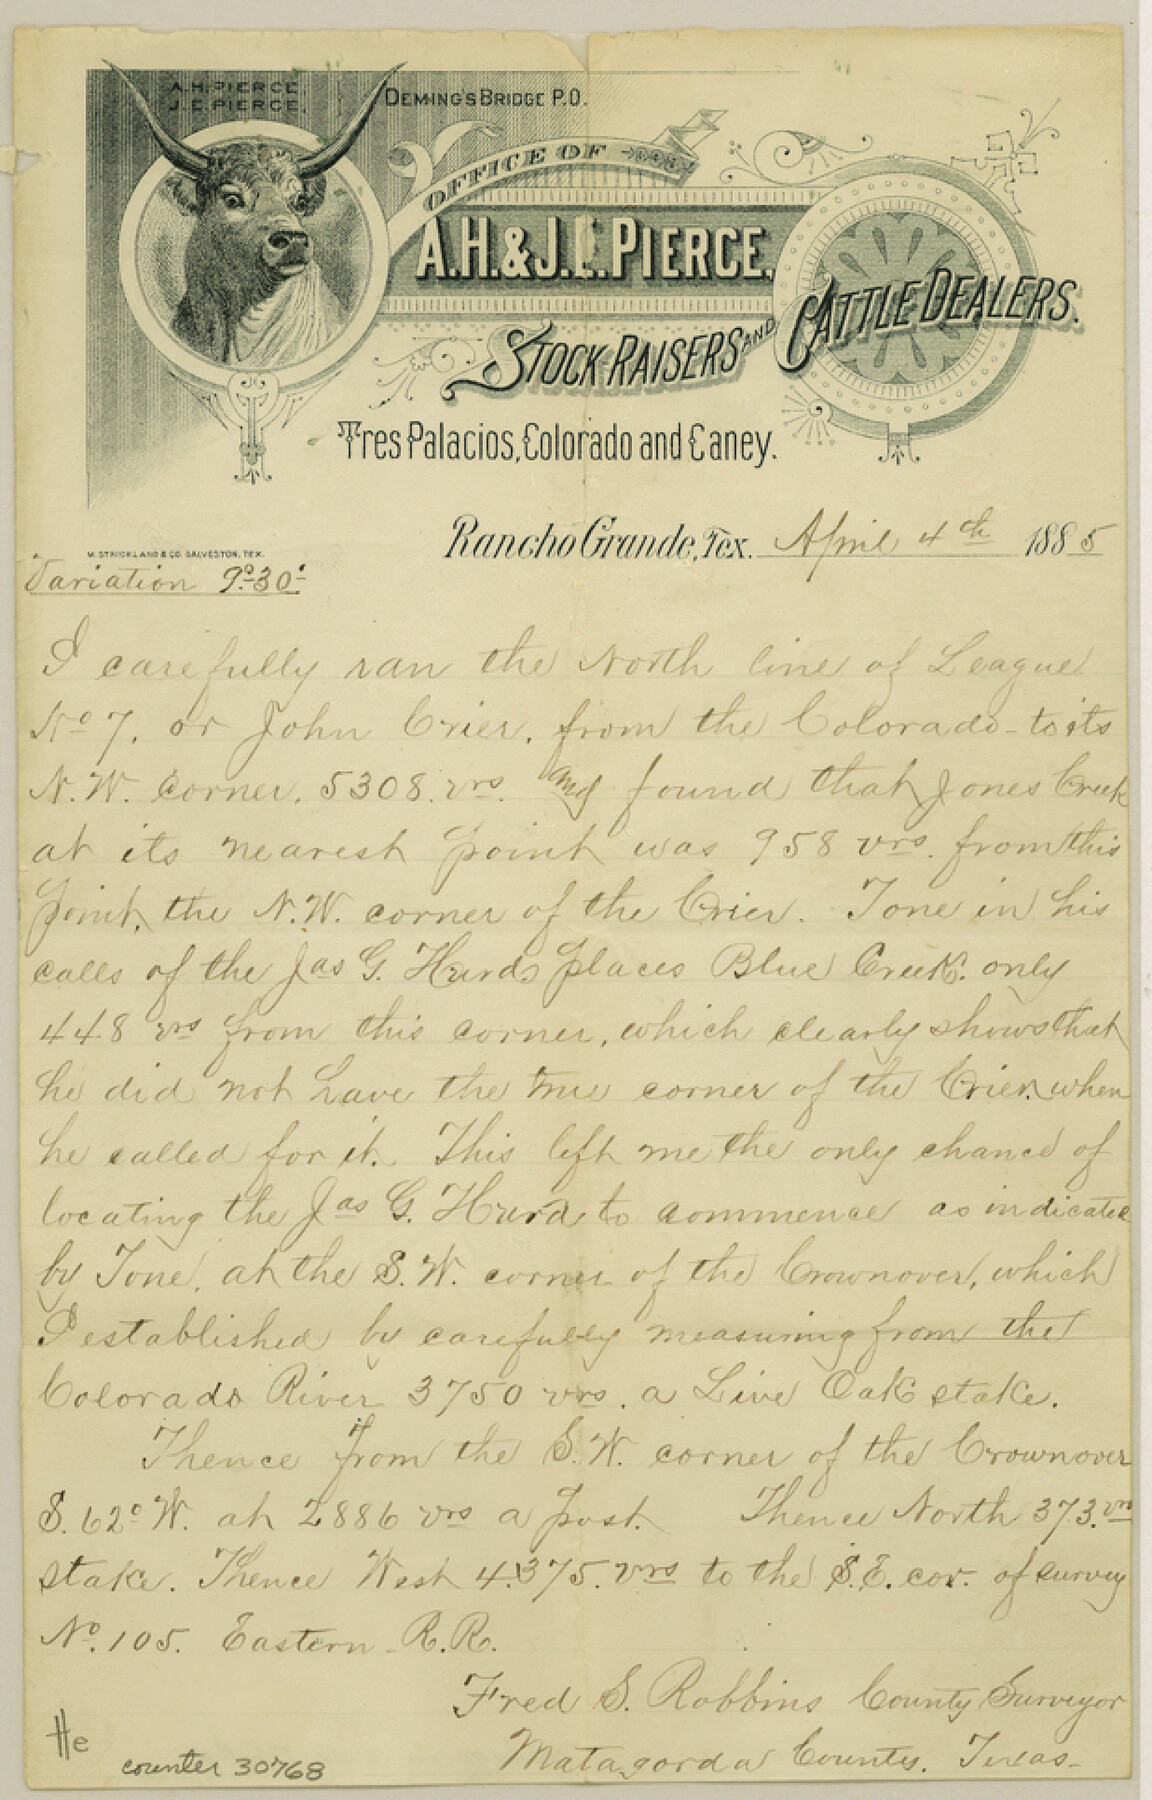 A.H. PIERCE.
J.E. PIERCE.
DEMING'S BRIDGE P.O.
OFFICE OF
A.H. & J.E. PIERCE,
STOCK-RAISERS AND CATTLE DEALERS.
Tres Palacios, Colorado and Caney.
Rancho Grande, Tex. April 4th 1885
M. STRICKLAND & CO. GALVESTON, TEX.
Variation 9°-30'
I carefully ran the North line of League
No 7. or John Crier, from the Colorado - to its
N.W. corner. 5308. vrs. and found that Jones Creek
at its nearest point was 958 vrs. from this
point, the N.W. corner of the Crier. Tone in his
calls of the Jas G. Hurd places Blue Creek. only
448 vrs from this corner, which clearly shows that
he did not have the true corner of the Crier when
he called for it. This left me the only chance of
locating the Jas G. Hurd to commence as indicated
by Tone, at the S.W. corner of the Crownover, which
I established by carefully measuring from the
Colorado River 3750 vrs. a Live Oak stake.
Thence from the S.W. corner of the Crownover
S. 62° W. at 2886 vrs a post. Thence North 373. vrs
stake. Thence West 4375. vrs to the S.E. cor. of survey
No. 105. Eastern R.R.
Fred S. Robbins County Surveyor
Matagorda County. Texas-
counter 30768